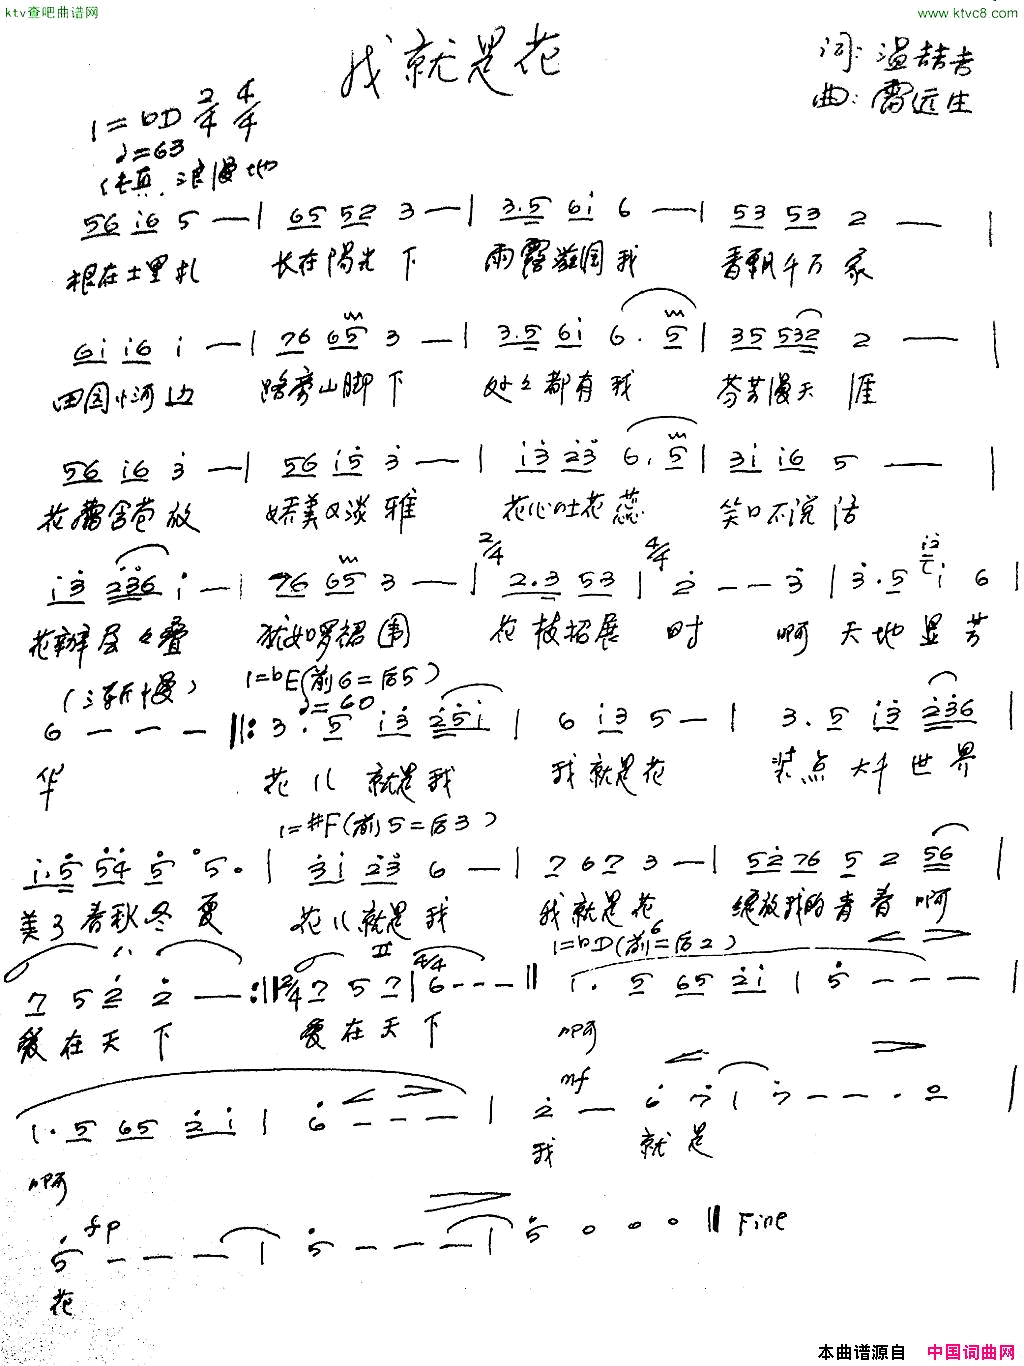 ktv查吧曲谱网
www.ktvc8.com
我就是花
词:温喆吉
曲:雷远生
1=bD 2/4 4/4
♩=63
纯真.浪漫地
56 i6 5 — | 65 52 3 — | 3.5 6i 6 — | 53 53 2 — |
根在土里扎 长在阳光下 雨露滋润我 香飘千万家
6i i6 i — | 76 65 3 — | 3.5 6i 6. 5 | 35 532 2 — |
田园小河边 路旁山脚下 处处都有我 芬芳漫天涯
56 i6 3 — | 56 i5 3 — | i3 23 6. 5 | 3i i6 5 — |
花蕾含苞放 娇美又淡雅 花心吐花蕊 笑口不说话
i3 236 i — | 76 65 3 — | 2/4 2.3 53 | 4/4 2 - - 3 | 3.5 i 6 |
花瓣层层叠 犹如罗裙围 花枝招展时 啊 天地显芳
(渐慢) 1=bE(前6=后5)
♩=60
6 — — — ‖: 3. 5 i3 25i | 6 i3 5 — | 3. 5 i3 236 |
华 花儿就是我 我就是花 装点大千世界
1=#F(前5=后3)
i.5 54 5 5. | 3i 23 6 — | 7 67 3 — | 52 76 5 2 56 |
美了春秋冬夏 花儿就是我 我就是花 绽放我的青春啊
1=bD(前6=后2)
7 5 2 2 — — :‖ 2/4 7 5 7 | 4/4 6 - - - ‖ i. 5 65 2i | 5 - - - |
爱在天下 爱在天下 啊
i. 5 65 2i | 6 - - - | 2 — 6 7 | 7 - - . 0 |
mf
啊 我 就是
fp
5 - - - | 5 - - - | 5 0 0 0 ‖ Fine
花
本曲谱源自 中国词曲网